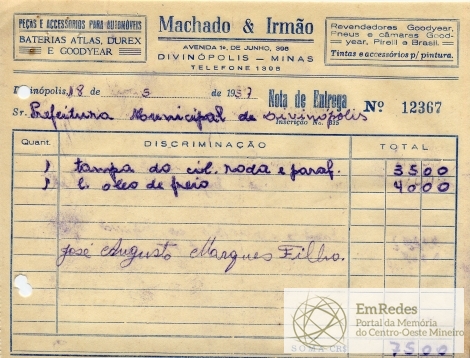 PEÇAS E ACCESSÓRIOS PARA AUTOMÓVEIS
BATERIAS ATLAS, DUREX
E GOODYEAR
Machado & Irmão
AVENIDA 1º, DE JUNHO, 398
DIVINÓPOLIS — MINAS
TELEFONE 1398
Revendedores Goodyear,
Pneus e câmaras Good-
year, Pirelli e Brasil.
Tintas e accessórios p/ pintura.
Divinópolis, 18 de 3 de 1957
Nota de Entrega Nº 12367
Sr. Prefeitura Municipal de Divinópolis
Inscrição No.
Quant. DISCRIMINAÇÃO TOTAL
1 tampa do cil. roda e paraf. 3500
1 l. oleo de freio 4000
José Augusto Marques Filho.
EmRedes
Portal da Memória
do Centro-Oeste Mineiro
SOMA-CR$ 7500